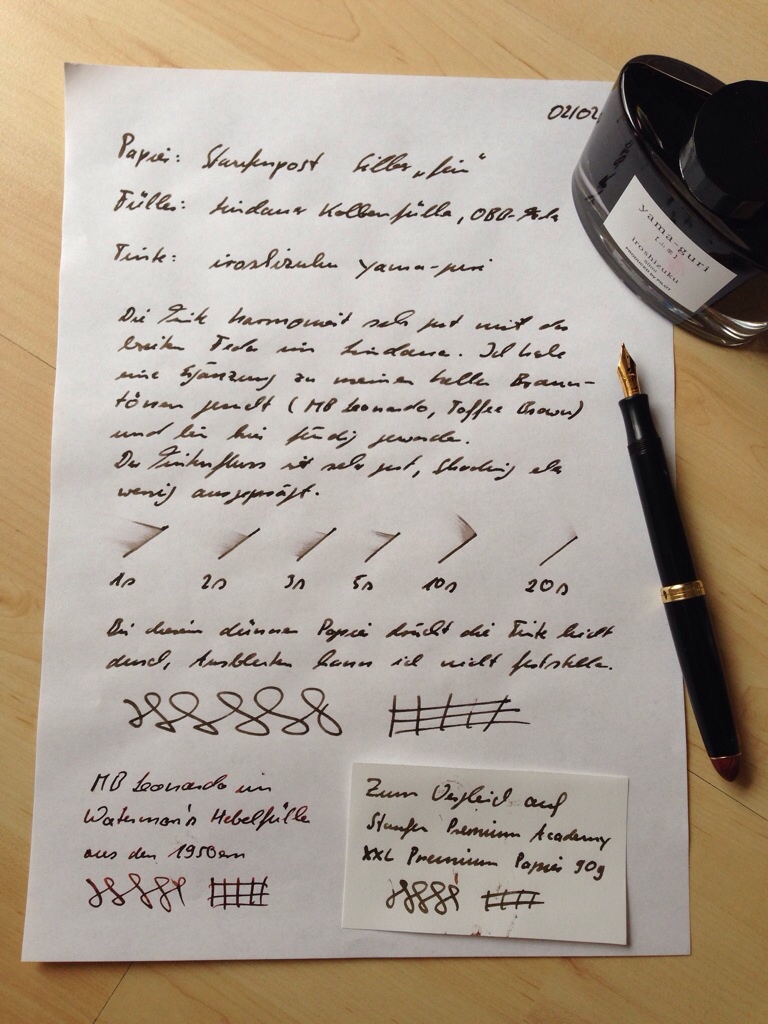 02/02
Papier: Staufenpost Silber „fein“
Füller: Lindauer Kolbenfüller, OBB-Feder
Tinte: iroshizuku yama-guri
Die Tinte harmoniert sehr gut mit der
breiten Feder im Lindauer. Ich habe
eine Ergänzung zu meinen hellen Braun-
tönen gesucht (MB Leonardo, Toffee Brown)
und bin hier fündig geworden.
Der Tintenfluss ist sehr gut, Shading eher
wenig ausgeprägt.
1s 2s 3s 5s 10s 20s
Bei diesem dünnen Papier drückt die Tinte leicht
durch, Ausbluten kann ich nicht feststellen.
MB Leonardo im
Waterman's Hebelfüller
aus den 1950ern
Zum Vergleich auf
Staufen Premium Academy
XXL Premium Papier 90g
yama-guri
iroshizuku